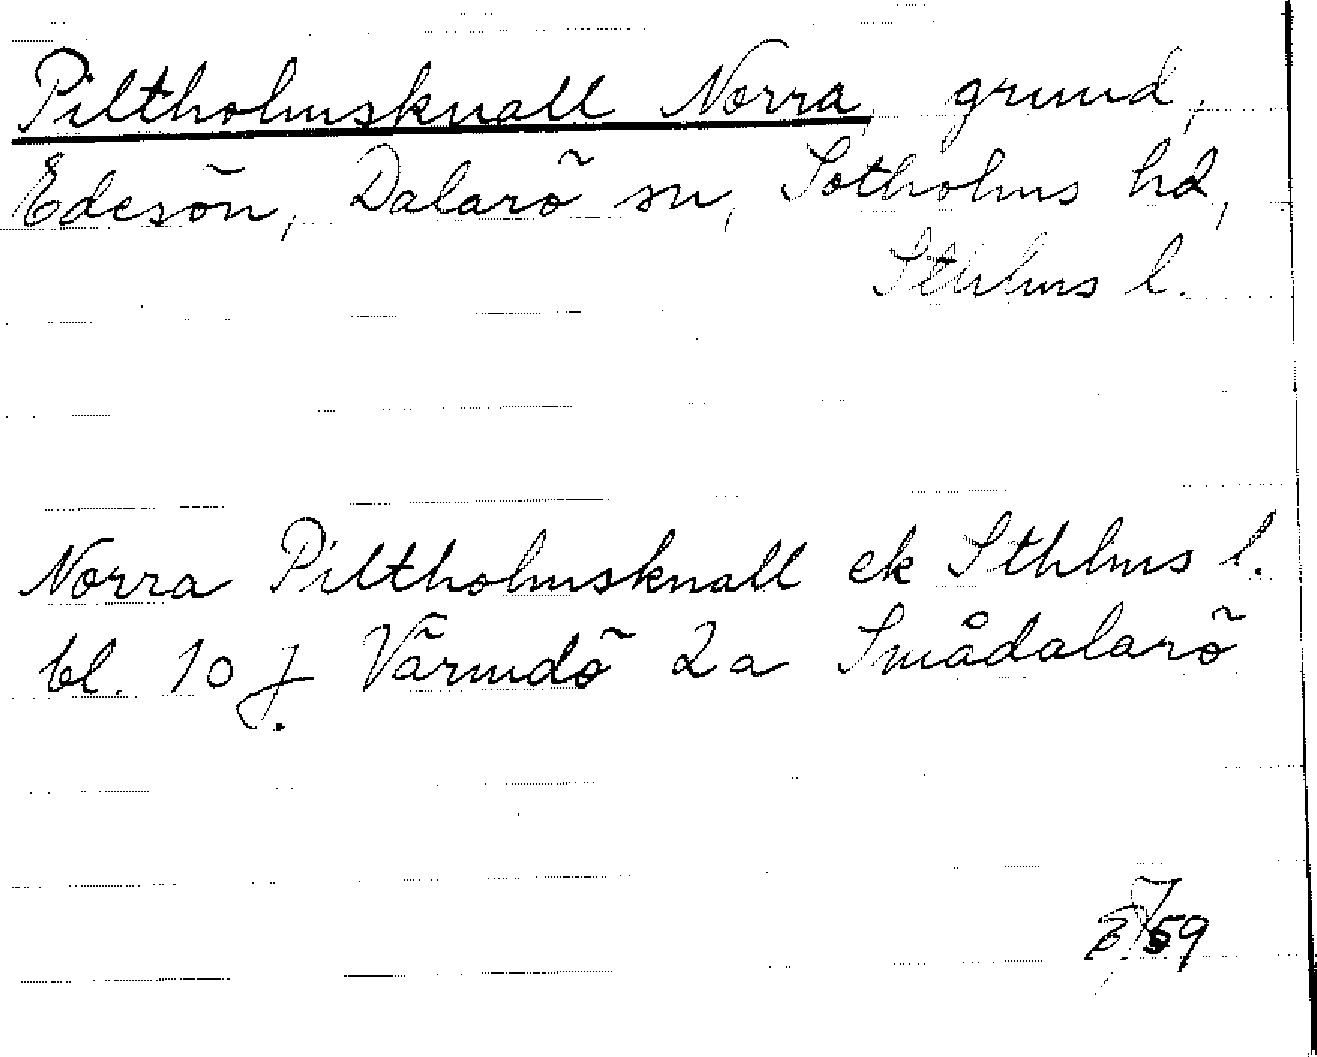 Piltholmsknall Norra, grund,
Edesön, Dalarö sn, Sotholms hd,
Sthlms l.
Norra Piltholmsknall ek Sthlms l.
bl. 10 J. Värmdö 2a Smådalarö
59